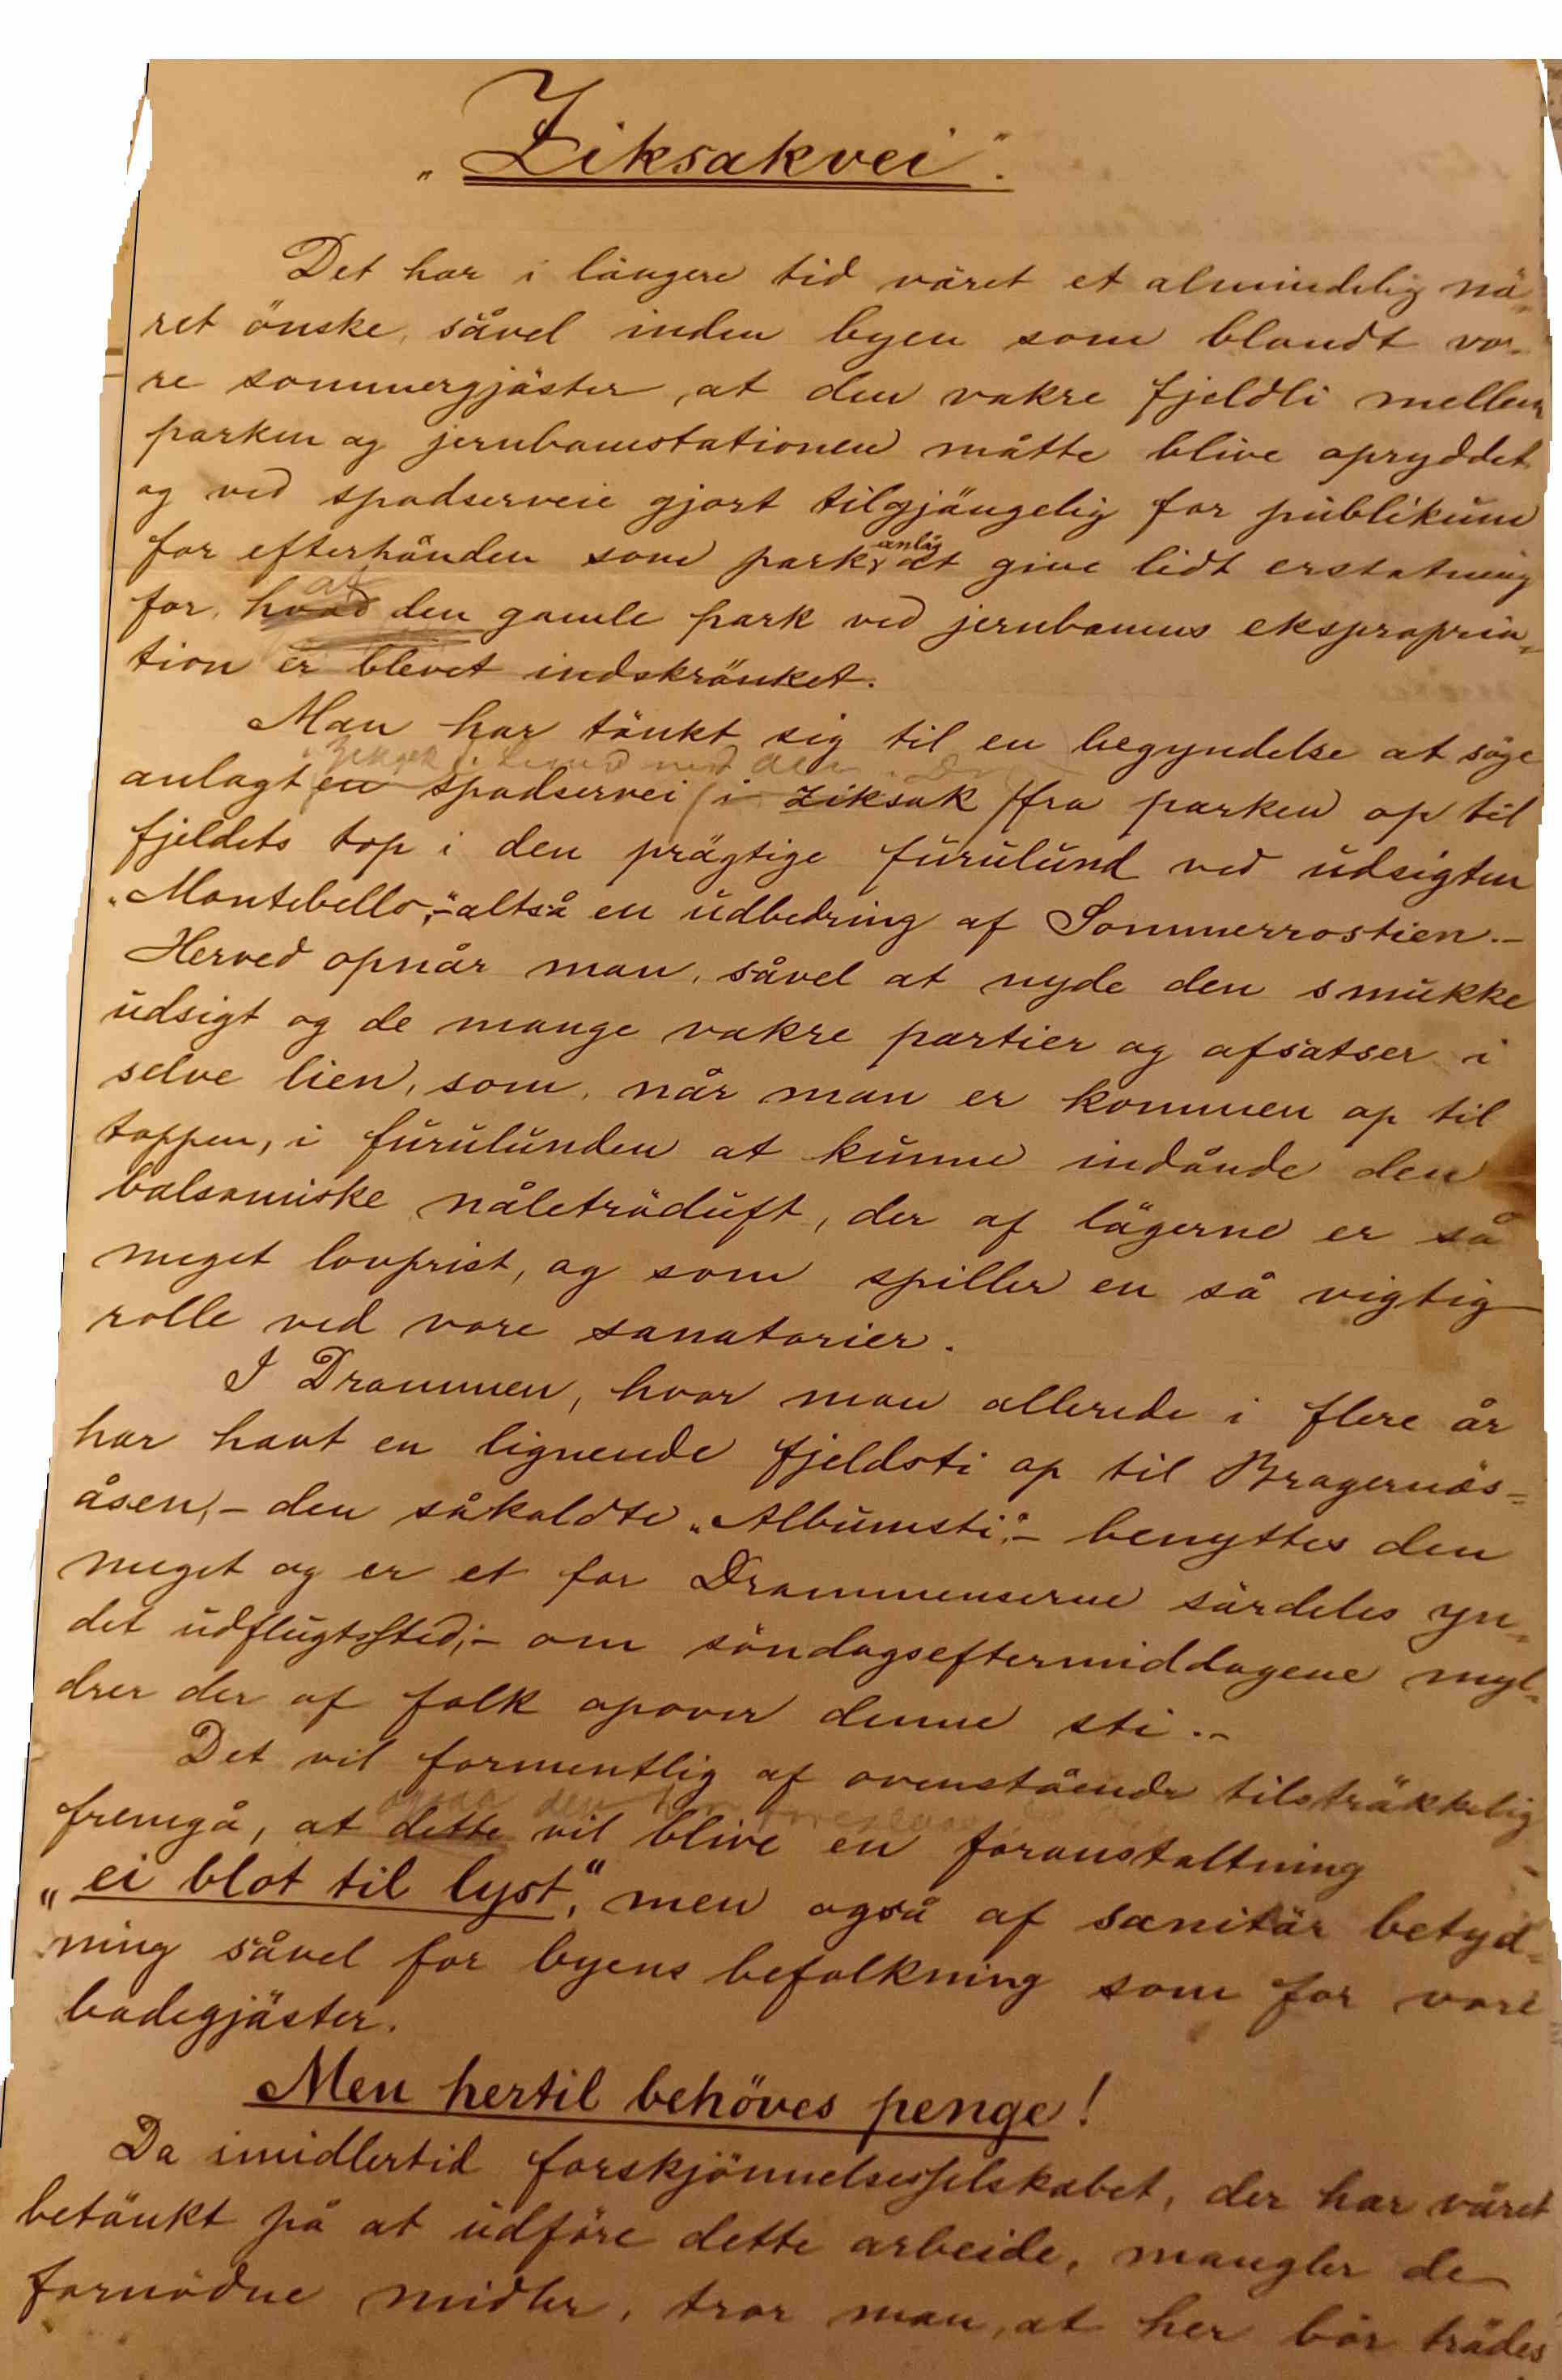 „Ziksakvei“.
Det har i längere tid väret et almindelig nä-
ret önske, såvel inden byen som blandt vo-
re sommergjäster, at den vakre fjeldli mellem
parken og jernbanestationen måtte blive opryddet
og ved spadserveie gjort tilgjängelig for publikum
anläg
for efterhånden som park at give lidt erstatning
af
for, hvad den gamle park ved jernbanens ekspropria-
tion er blevet indskränket.
Man har tänkt sig til en begyndelse at söge
anlagt en spadservei (i ziksak) fra parken op til
fjeldets top i den prägtige furulund ved udsigten
„Montebello“,- altså en udbedring af Sommerrostien.-
Herved opnår man, såvel at nyde den smukke
udsigt og de mange vakre partier og afsatser i
selve lien, som, når man er kommen op til
toppen, i furulunden at kunne indånde den
balsamiske nåleträduft, der af lägerne er så
meget lovprist, og som spiller en så vigtig
rolle ved vore sanatorier.
I Drammen, hvor man allerede i flere år
har havt en lignende fjeldsti op til Bragernäs-
åsen,- den såkaldte „Albumsti“,- benyttes den
meget og er et for Drammenserne särdeles yn-
det udflugtssted;- om söndagseftermiddagene myl-
drer der af folk opover denne sti.-
Det vil formentlig af ovenstående tilsträkkelig
fremgå, at dette vil blive en foranstaltning
„ei blot til lyst“, men også af sanitär betyd-
ning såvel for byens befolkning som for vore
badegjäster.
Men hertil behöves penge!
Da imidlertid forskjönnelsesselskabet, der har väret
betänkt på at udföre dette arbeide, mangler de
fornödne midler, tror man, at her bör trädes